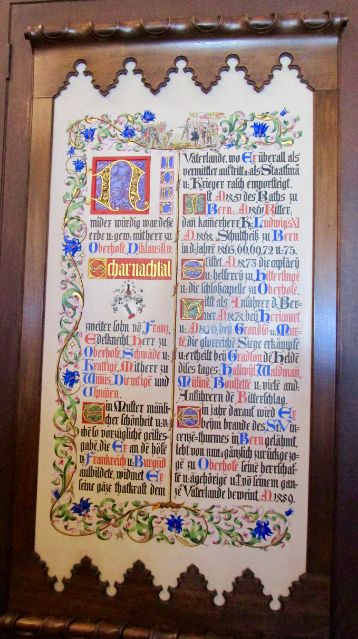 N
mider würdig war deße
erbe u: gew: mitherr zu
Oberhofē, Niklaus II. v:
Scharnachtal
zweiter sohn vō Franz,
Edelknecht, Herr zu
Oberhofē, Schwādē u:
Mitherr zu
Wimis, Diemtigē und
Ein Muster mānli-
cher schönheit u: v:
ehē so vorzüglichē geistes-
gabē, die Er an dē höfē
v: Frankreich u: Burgūd
ausbildete, widmet Er
seine gāze thatkraft dem
Vaterlande, wo Er überall als
vermittler auftritt u: als Staatsmā
u: Krieger rasch emporsteigt.
Ist A. 1451 des Raths zu
Bern, Ritter,
dañ kamerherr K: Ludwigs XI
Schultheiß zu Bern
in d: Jahrē 1465, 66, 69, 72 u: 75.
Stiftet A. 1473 die caplaēy
zu Hilterfingē
u: die schloßcapelle zu Oberhofē
Hilft als Anführer d: Ber-
ner A. 1474 bey Hericurt
u: A. 1476 bey Grandsō u: Mur-
tē, die glorreichē Siege erkämpfē
u: ertheilt bey Grādson dē Heldē
dises tages: Hallwil, Waldmañ,
u: viele and:
Anführern dē Ritterschlag.
Ein jahr darauf wird Er
beim brande des
in Bern gelähmt,
lebt von nun a: gänzlich zurückgezo-
gē zu Oberhofē seine herrschaf-
tē u: agehörigē
Vaterlande beweint, A. 1489.